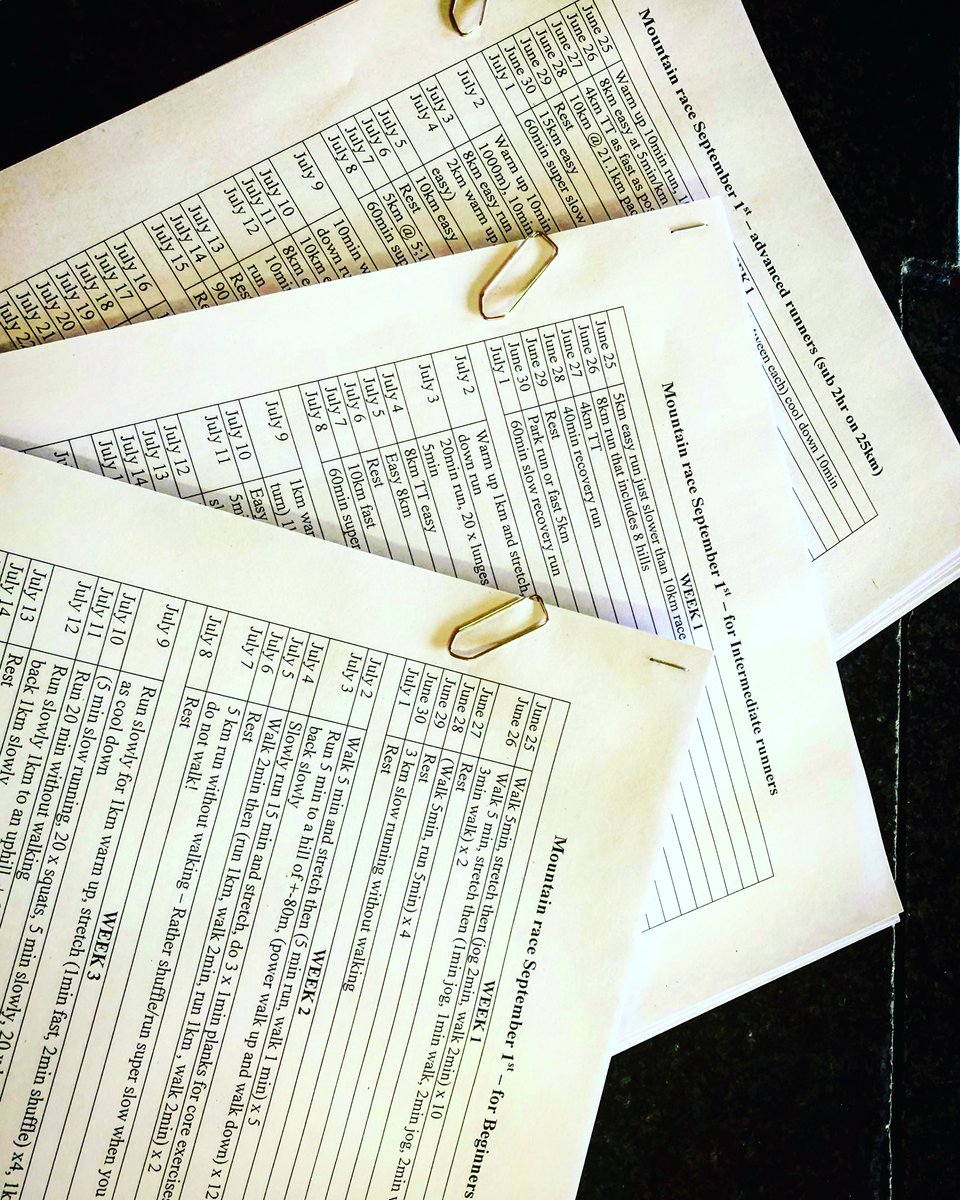 Mountain race September 1st – advanced runners (sub 2hr on 25km)
1
ween each) cool down 10min
June 25 Warm up 10min run,
June 26 8km easy at 5min/km
June 27 4km TT as fast as pos
June 28 10km @ 21.1km pac
June 29 Rest
June 30 15km easy
July 1 60min super slow
July 2 Warm up 10min
1000m), 10min
July 3 8km easy run
July 4 2km warm up
easy)
July 5 10km easy
July 6 Rest
July 7 5km @ 5;1
July 8 60min sup
July 9 10min w
down ru
July 10 10km
July 11 8km e
July 12 10mi
run
July 13 Rest
July 14 90
July 15 Re
July 16
July 17
July 18
July 19
July 20
July 21
Mountain race September 1st – for Intermediate runners
WEEK 1
June 25 5km easy run just slower than 10km race
June 26 8km run that includes 8 hills
June 27 4km TT
June 28 40min recovery run
June 29 Rest
June 30 Park run or fast 5km
July 1 60min slow recovery run
July 2 Warm up 1km and stretch,
down run
July 3 20min run, 20 x lunges
5min
July 4 8km TT easy
July 5 Easy 8km
July 6 Rest
July 7 10km fast
July 8 60min super
July 9 1km war
turn) 1
July 10 Easy
July 11 5m
July 12
July 13
July 14
Mountain race September 1st – for Beginners
WEEK 1
June 25 Walk 5min, stretch then (jog 2min, walk 2min) x 10
June 26 Walk 5 min, stretch then (1min jog, 1min walk, 2min jog, 2min
3min walk) x 2
June 27 Rest
June 28 (Walk 5min, run 5min) x 4
June 29 Rest
June 30 3 km slow running without walking
July 1 Rest
WEEK 2
July 2 Walk 5 min and stretch then (5 min run, walk 1 min) x 5
July 3 Run 5 min to a hill of +-80m, (power walk up and walk down) x 12
back slowly
July 4 Slowly run 15 min and stretch, do 3 x 1min planks for core exercises
July 5 Walk 2min then (run 1km, walk 2min, run 1km , walk 2min) x 2
July 6 Rest
July 7 5 km run without walking – Rather shuffle/run super slow when you
do not walk!
July 8 Rest
WEEK 3
July 9 Run slowly for 1km warm up, stretch (1min fast, 2min shuffle) x4, 1k
as cool down
July 10 (5 min slow running, 20 x squats, 5 min slowly, 20
July 11 Run 20 min without walking
July 12 Run slowly 1km to an uphill
back 1km slowly
July 13 Rest
July 14